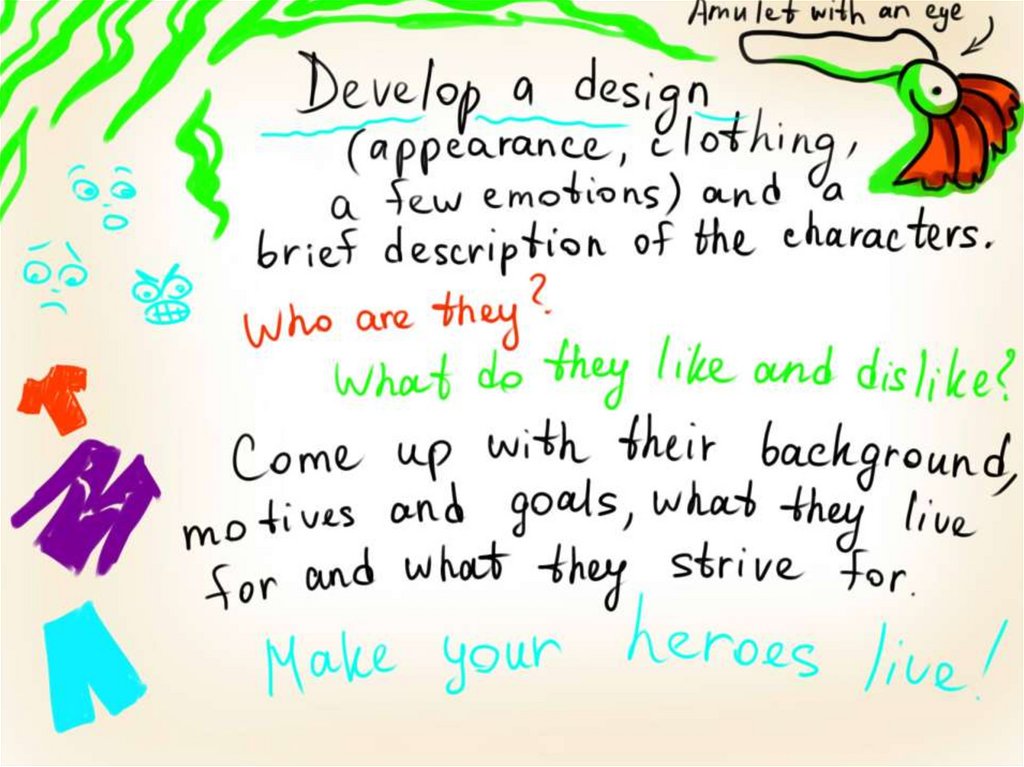 Amulet with an eye
Develop a design
(appearance, clothing,
a few emotions) and a
brief description of the characters.
Who are they?
What do they like and dislike?
Come up with their background,
motives and goals, what they live
for and what they strive for.
Make your heroes live!